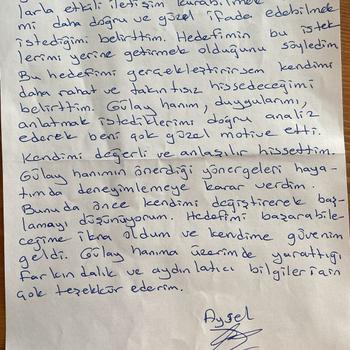 larla etkili iletişim kurabilmek
mi daha doğru ve güzel ifade edebilmek
istediğimi belirttim. Hedefimin bu istek
lerimi yerine getirmek olduğunu söyledim
Bu hedefimi gerçekleştirirsem kendimi
daha rahat ve takıntısız hissedeceğimi
belirttim. Gülay hanım, duygularımı,
anlatmak istediklerimi doğru analiz
ederek beni çok güzel motive etti.
Kendimi değerli ve anlaşılır hissettim.
Gülay hanımın önerdiği yönergeleri haya-
tımda deneyimlemeye karar verdim.
Bunuda önce kendimi değiştirerek baş-
lamayı düşünüyorum. Hedefimi başarabile-
ceğime ikna oldum ve kendime güvenim
geldi. Gülay hanıma üzerimde yarattığı
farkındalık ve aydınlatıcı bilgiler için
çok teşekkür ederim.
Aysel